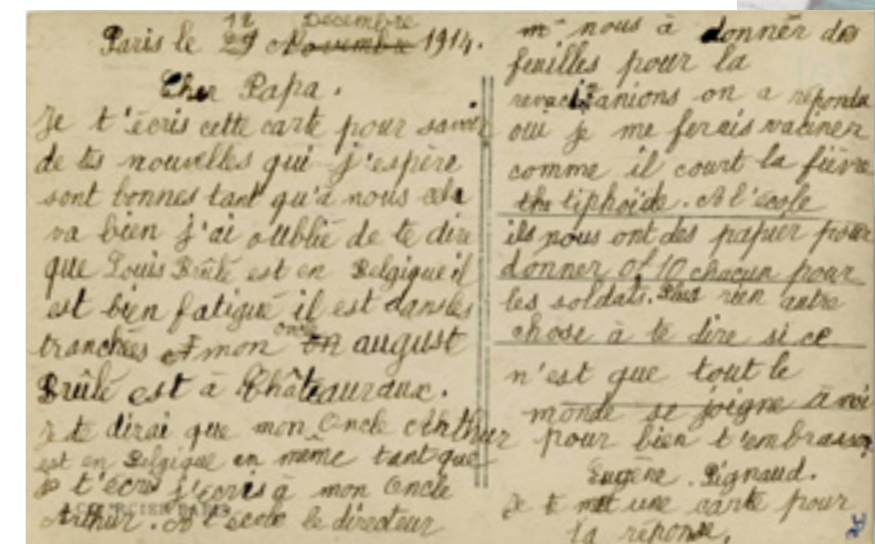 12 Décembre
Paris le 29 Novembre 1914.
Cher Papa.
Je t'écris cette carte pour savoir
de tes nouvelles qui j'espère
sont bonnes tant qu'à nous cela
va bien j'ai oublié de te dire
que Louis Brûlé est en Belgique il
est bien fatigué il est dans les
tranchées et mon oncle august
Brûlé est à Châteauroux.
Je te dirai que mon Oncle Arthur
est en Belgique en meme tant que
je t'écris j'écris à mon Oncle
Arthur. A l'école le directeur
nous à donnér des
feuilles pour la
on a répondu
oui je me ferais vaciner
comme il court la fièvre
tiphoïde. A l'école
ils nous ont des papier pour
donner 0f10 chacun pour
les soldats. Plus rien autre
chose à te dire si ce
n'est que tout le
monde se joigne à moi
pour bien t'embrasser
Eugène. Pignaud.
Je te met une carte pour
la réponse.